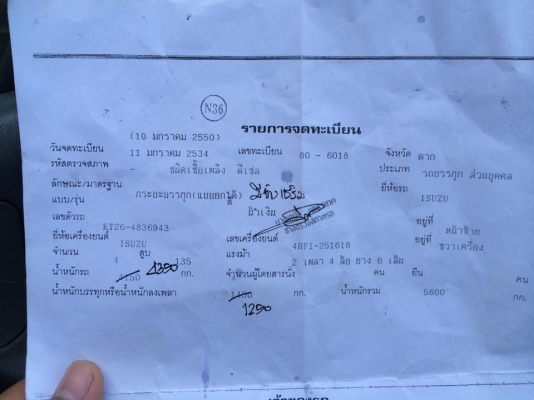 N36
รายการจดทะเบียน
(10 มกราคม 2550)
วันจดทะเบียน 11 มกราคม 2534 เลขทะเบียน 80 - 6018 จังหวัด ตาก
รหัสตรวจสภาพ - ชนิดเชื้อเพลิง ดีเซล ประเภท รถบรรทุก ส่วนบุคคล
ลักษณะ/มาตรฐาน กระบะบรรทุก(แบบยกได้) ยี่ห้อรถ ISUZU
แบบ/รุ่น ฟ้าเงิน
เลขตัวรถ KT26-4836943 อยู่ที่ หน้าซ้าย
ยี่ห้อเครื่องยนต์ ISUZU เลขเครื่องยนต์ 4HF1-251618 อยู่ที่ ขวาเครื่อง
จำนวน 4 สูบ 135 แรงม้า 2 เพลา 4 ล้อ ยาง 6 เส้น
น้ำหนักรถ 4150 4350 กก. จำนวนผู้โดยสารนั่ง คน ยืน คน
น้ำหนักบรรทุกหรือน้ำหนักลงเพลา 1450 กก. น้ำหนักรวม 5600 กก.
1250